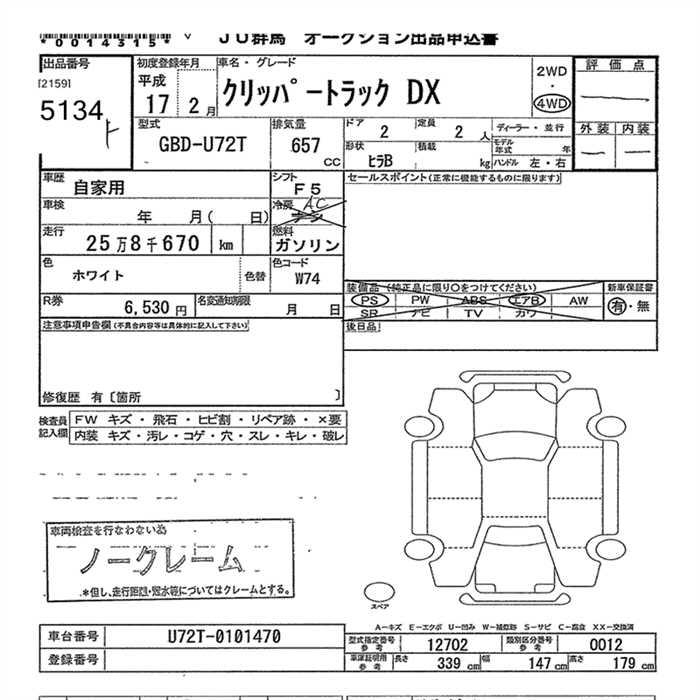 *0014315* ∨ JU群馬 オークション出品申込書
出品番号 初度登録年月 車名・グレード 評価点
[2159] 平成 2WD
5134 17 2月 クリッパートラック DX 4WD
ト
型式 排気量 ドア 定員 ディーラー・並行 外装 内装
GBD-U72T 657 CC 2 2人 モデル年式 年
形状 積載
ヒラB kg ハンドル 左・右
車歴 自家用 シフト F5 セールスポイント(正常に機能するものに限ります)
車検 年 月( 日) 冷房 AC
走行 25万8千670 km 燃料 ガソリン
色 ホワイト 色替 色コード W74
装備品(純正品に限り○をつけてください) 新車保証書
R券 6,530円 名変通知期限 月 日 PS PW ABS エアB AW 有・無
SR ナビ TV カワ
注意事項申告欄(不具合内容等は具体的に記入して下さい) 後日品
修復歴 有〔箇所 〕
検査員記入欄 FW キズ・飛石・ヒビ割・リペア跡・×要
内装 キズ・汚レ・コゲ・穴・スレ・キレ・破レ
車両検査を行なわない為
ノークレーム
*但し、走行距離・冠水等についてはクレームとする。
スペア
A−キズ E−エクボ U−凹み W−補修跡 S−サビ C−腐食 XX−交換済
車台番号 U72T-0101470 型式指定番号 参考 12702 類別区分番号 参考 0012
登録番号 車庫証明用 参考 長さ 339 cm 幅 147 cm 高さ 179 cm